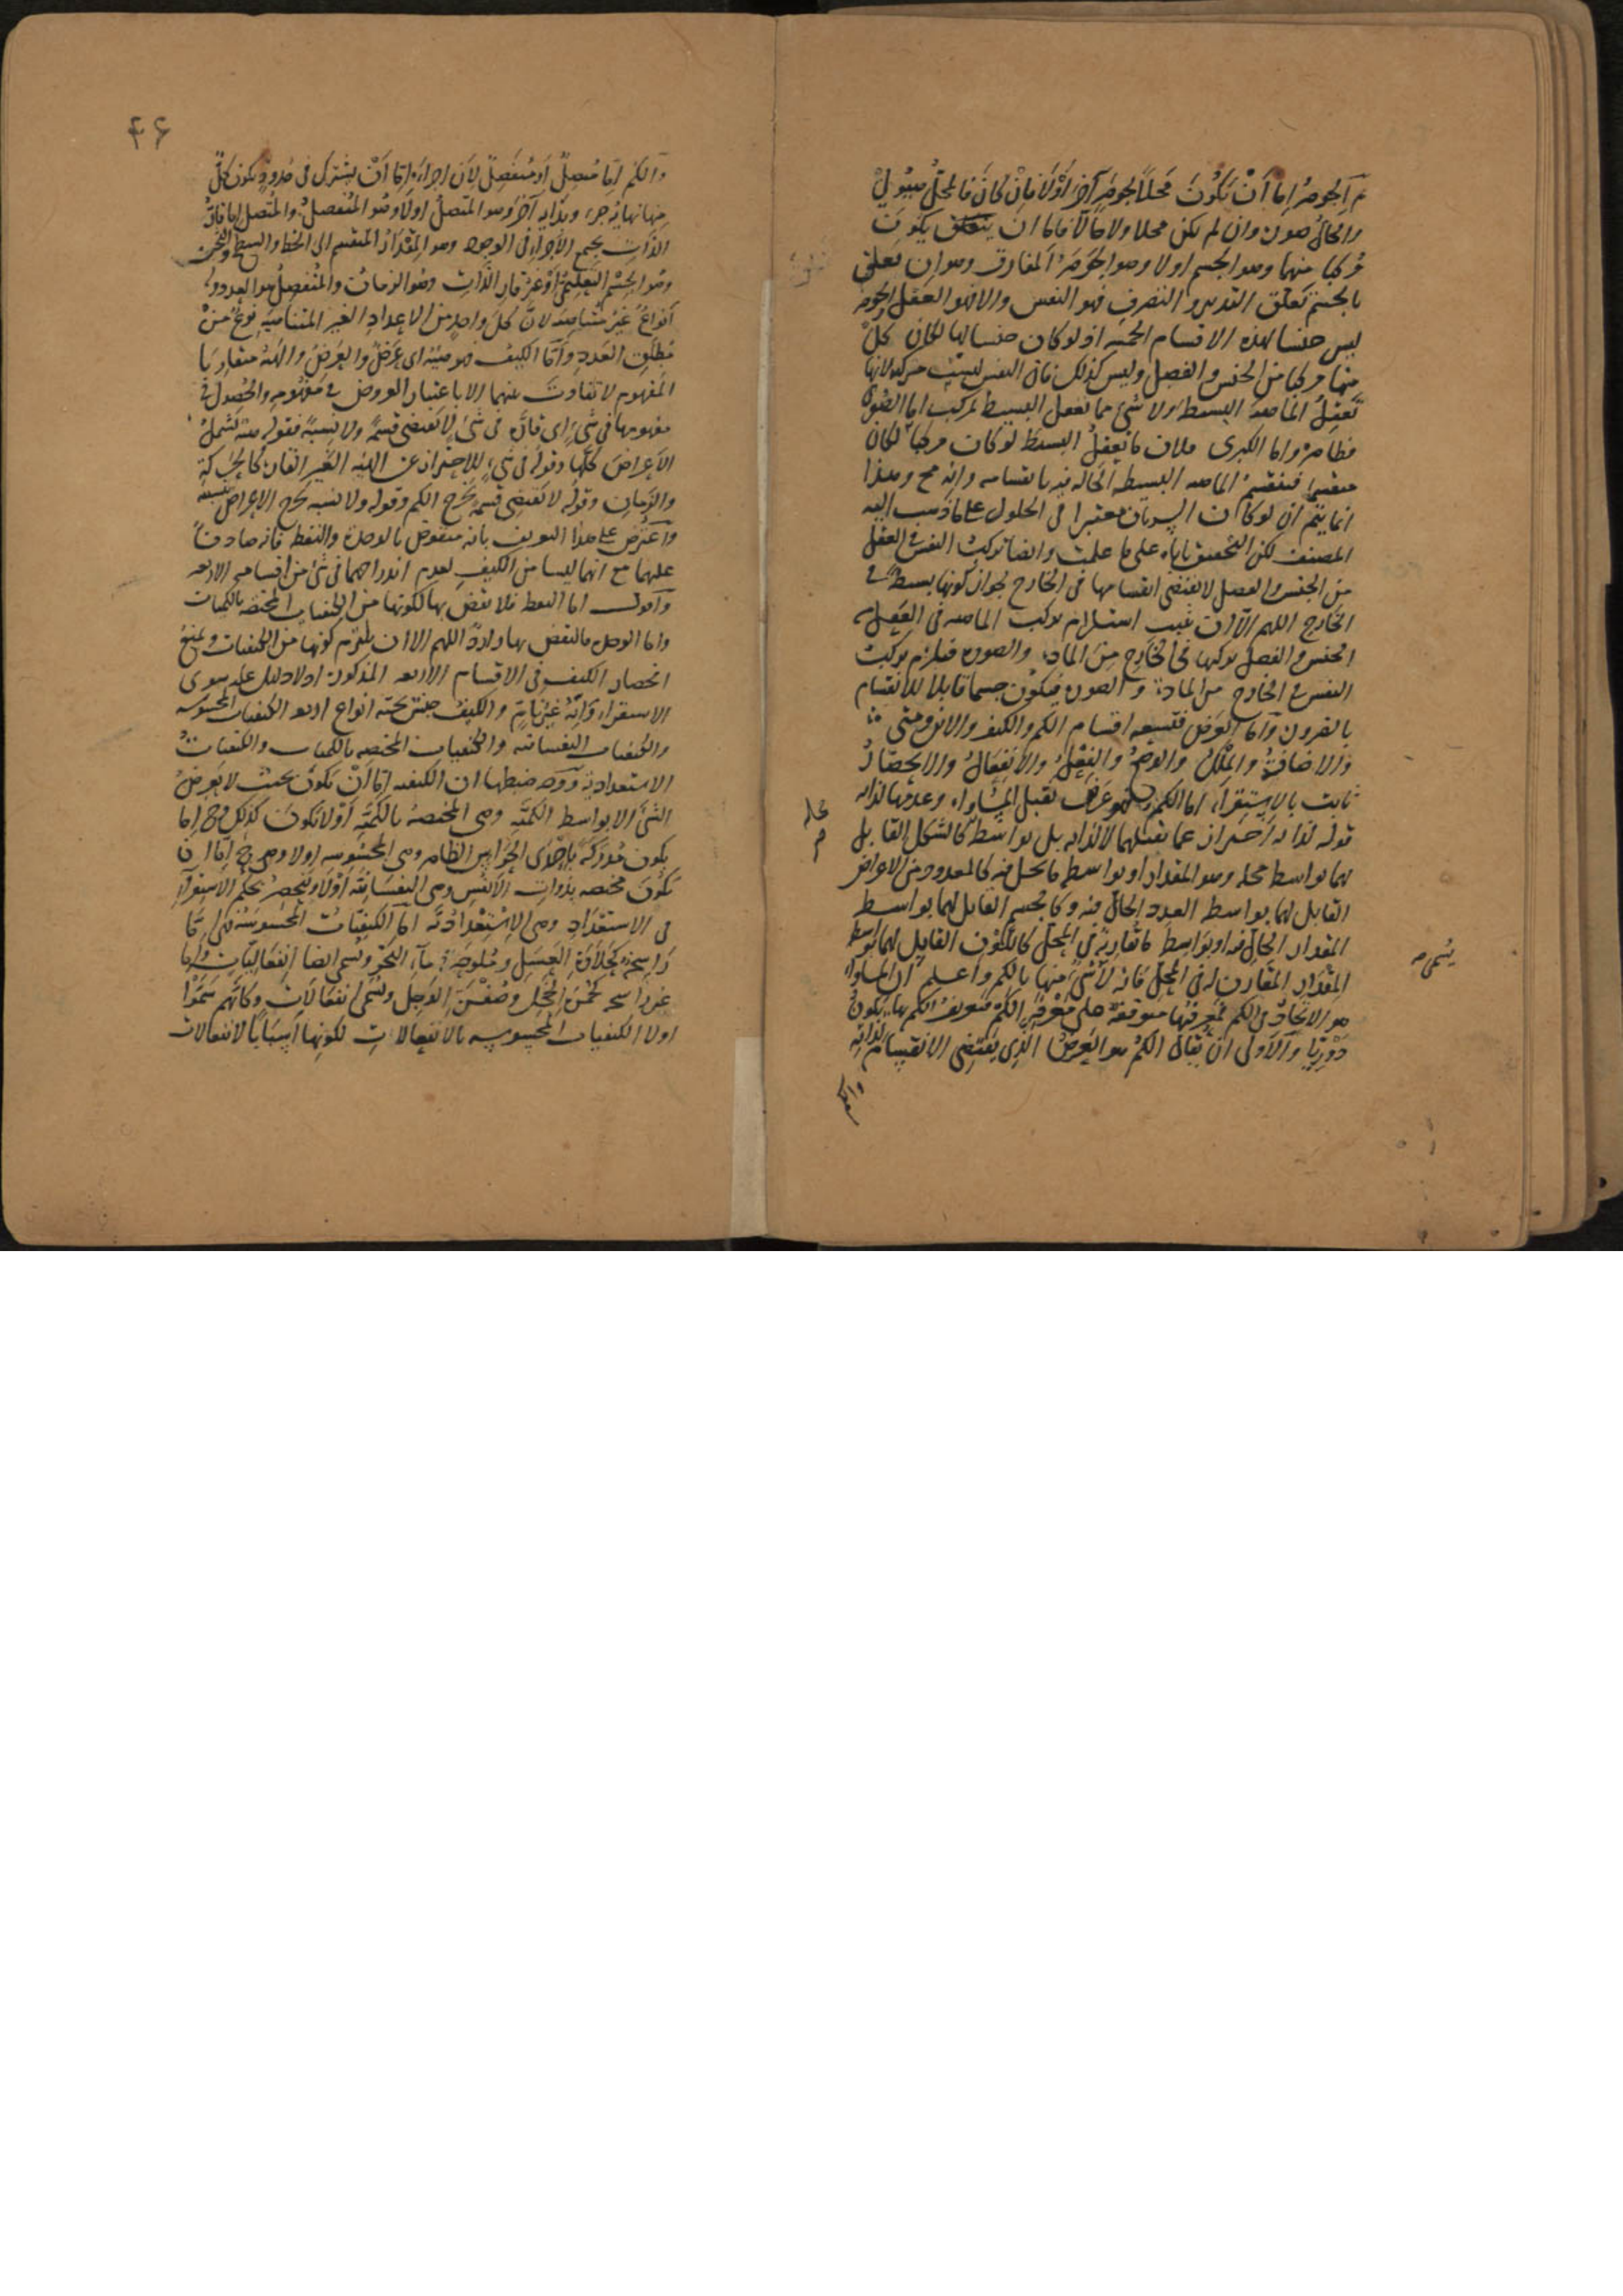 ثم الجوهر اما ان يكون محلا لجوهر آخر أو لا فان كان فالمحل هيولى
والحال صورة وان لم يكن محلا ولا حالا فاما ان يكون
مركبا منهما وهو الجسم اولا وهو الجوهر المفارق وهو ان تعلق
بالجسم تعلق التدبير والتصرف فهو النفس والا فهو العقل والجوهر
ليس جنسا لهذه الاقسام الخمسة اذ لو كان جنسا لها لكان كل
منها مركبا من الجنس والفصل وليس كذلك فان النفس ليست مركبة لانها
تعقل الماهية البسيطة ولا شئ مما تعقل البسيط بمركب اما الصغرى
فظاهرة واما الكبرى فلان ما يعقل البسيط لو كان مركبا لكان
منقسما فينقسم الماهية البسيطة الحالة فيه بانقسامه وانه مح وهذا
انما يتم ان لو كان السريان معتبرا فى الحلول على ما ذهب اليه
المصنف لكن التحقيق ياباه على ما علمت وايضا تركيب النفس فى العقل
من الجنس والفصل لا يقتضى انقسامها فى الخارج لجواز كونها بسيطة فى
الخارج اللهم الا ان يثبت استلزام تركيب الماهية فى العقل من
الجنس والفصل تركبها فى الخارج من المادة والصورة فيلزم تركيب
النفس فى الخارج من المادة والصورة فيكون جسما قابلا للانقسام
واما العرض فتسعة اقسام الكم والكيف والاين ومتى
والاضافة والملك والوضع والفعل والانفعال والانحصار
ثابت بالاستقراء اما الكم فهو عرض يقبل المساواة وعدمها لذاته
قوله لذاته احتراز عما يقبلهما لا لذاته بل بواسطة كالشكل القابل
لهما بواسطة محله وهو المقدار او بواسطة ما يحل فيه كالمعدود من الاعراض
القابل لهما بواسطة العدد الحال فيه وكالجسم القابل لهما بواسطة
المقدار الحال فيه او بواسطة ما يقارنه فى المحل كاللون القابل لهما بواسطة
المقدار المقارن له فى المحل فانه لا شئ منها بالكم واعلم ان المساواة
هو الاتحاد فى الكم فمعرفتها متوقفة على معرفة الكم فتعريف الكم بها يكون
دوريا والاولى ان يقال الكم هو العرض الذى يقتضى الانقسام لذاته
والكم
محله
يسمى
۴۶
والكم اما متصل او منفصل لان اجزاءه اما ان يشترك فى حدود يكون كل
منها نهاية جزء وبداية آخر وهو المتصل اولا وهو المنفصل والمتصل اما قار
الذات يجمع الاجزاء فى الوجود وهو المقدار المنقسم الى الخط والسطح والثخن
وهو الجسم التعليمى او غير قار الذات وهو الزمان والمنفصل هو العدد وله
انواع غير متناهية لان كل واحد من الاعداد الغير المتناهية نوع من
مطلق العدد واما الكيف فهو هيئة اى عرض والعرض والهيئة متقاربا
المفهوم لا تفاوت بينهما الا باعتبار العروض فى مفهومه والحصول فى
مفهومها فى شئ اى قارة فى شئ لا يقتضى قسمة ولا نسبة فقوله هيئة تشمل
الاعراض كلها وقوله فى شئ للاحتراز عن الهيئة الغير القارة كالحركة
والزمان وقوله لا يقتضى قسمة يخرج الكم وقوله ولا نسبة يخرج الاعراض النسبية
واعترض على هذا التعريف بانه منقوض بالوحدة والنقطة فانه صادق
عليهما مع انهما ليسا من الكيف لعدم اندراجهما فى شئ من اقسامه الاربعة
واقول اما النقطة فلا نقض بها لكونها من الكيفيات المختصة بالكميات
واما الوحدة فالنقض بها وارد اللهم الا ان يلتزم كونها من الكيفيات ويمنع
انحصار الكيف فى الاقسام الاربعة المذكورة اذ لا دليل عليه سوى
الاستقراء وانه غير تام والكيف جنس تحته انواع اربعة الكيفيات المحسوسة
والكيفيات النفسانية والكيفيات المختصة بالكميات والكيفيات
الاستعدادية ووجه ضبطها ان الكيفية اما ان يكون بحيث لا يعرض
الشئ الا بواسطة الكمية وهى المختصة بالكمية او لا تكون كذلك وح اما
يكون مدركة باحدى الحواس الظاهر وهى المحسوسة اولا وهى ح اما ان
يكون مختصة بذوات الانفس وهى النفسانية او لا وينحصر بحكم الاستقراء
فى الاستعداد وهى الاستعدادية اما الكيفيات المحسوسة فهى اما
راسخة كحلاوة العسل وملوحة ماء البحر وتسمى ايضا انفعاليات واما
غير راسخة كحمرة الخجل وصفرة الوجل وتسمى انفعالات وكانهم سموا
اولا الكيفيات المحسوسة بالانفعالات لكونها اسبابا لانفعالات